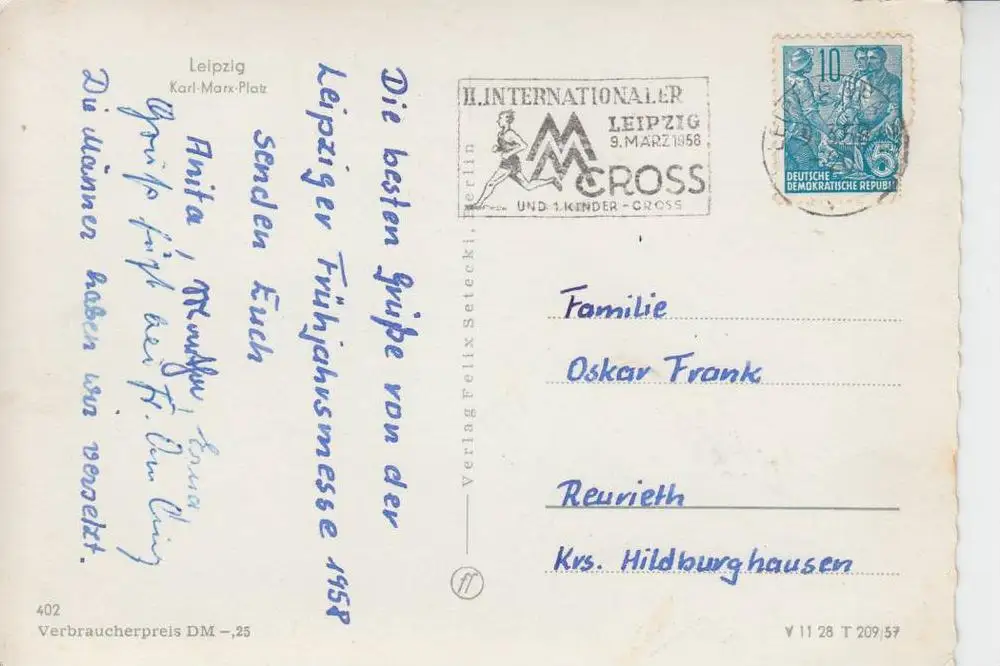 Leipzig
Karl-Marx-Platz
Die besten Grüße von der
Leipziger Frühjahrsmesse 1958
senden Euch
Anita, Mutter, Erna
Gruß fügt bei Fr.
Die Männer haben wir versetzt.
402
Verbraucherpreis DM –,25
Verlag Felix Setecki, Berlin
II. INTERNATIONALER
LEIPZIG
9. MÄRZ 1958
MM
MM CROSS
UND 1. KINDER-CROSS
10
5
DEUTSCHE
DEMOKRATISCHE REPUBLIK
Familie
Oskar Frank
Reurieth
Krs. Hildburghausen
V 11 28 T 209/57